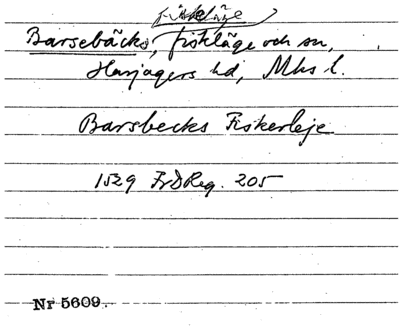 fiskeläge
Barsebäcks, fiskläge och sn,
Harjagers hd, Mhs l.
Barsbecks Fiskerleje
1529 FrDReg. 205
Nr 5609.